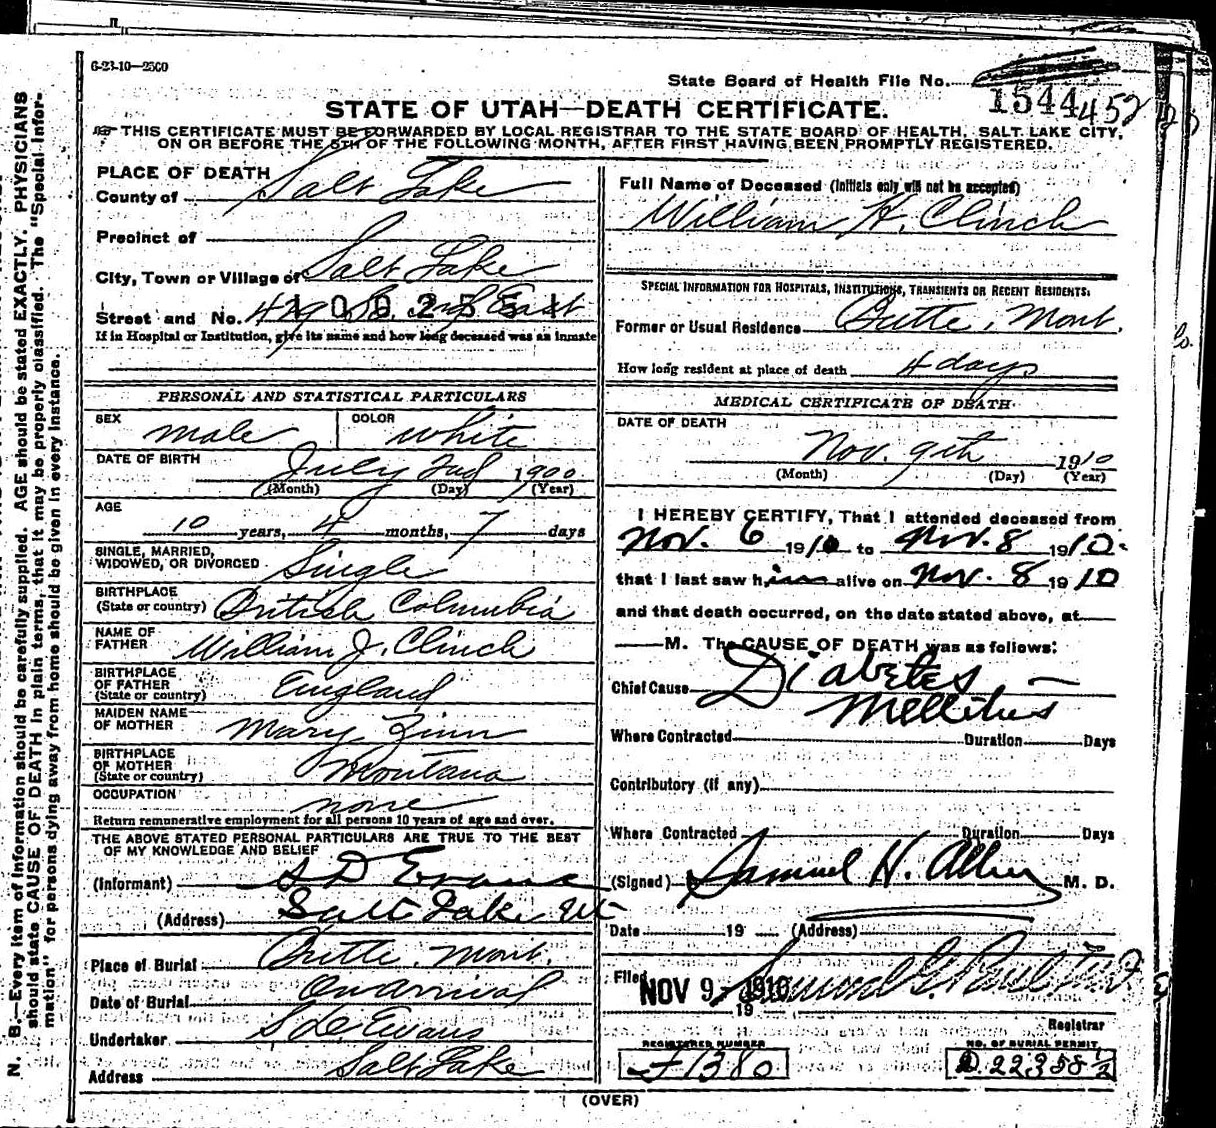 6-23-10—2500
State Board of Health File No.
1544 452
STATE OF UTAH—DEATH CERTIFICATE.
THIS CERTIFICATE MUST BE FORWARDED BY LOCAL REGISTRAR TO THE STATE BOARD OF HEALTH, SALT LAKE CITY,
ON OR BEFORE THE 5TH OF THE FOLLOWING MONTH, AFTER FIRST HAVING BEEN PROMPTLY REGISTERED.
PLACE OF DEATH
County of Salt Lake
Precinct of
City, Town or Village of Salt Lake
Street and No. East
If in Hospital or Institution, give its name and how long deceased was an inmate
PERSONAL AND STATISTICAL PARTICULARS
SEX male COLOR white
DATE OF BIRTH July 2nd 1900
(Month) (Day) (Year)
AGE
10 years, 4 months, 7 days
SINGLE, MARRIED,
WIDOWED, OR DIVORCED Single
BIRTHPLACE
(State or country) British Columbia
NAME OF
FATHER William J. Clinch
BIRTHPLACE
OF FATHER
(State or country) England
MAIDEN NAME
OF MOTHER Mary Zinn
BIRTHPLACE
OF MOTHER
(State or country) Montana
OCCUPATION
none
Return remunerative employment for all persons 10 years of age and over.
THE ABOVE STATED PERSONAL PARTICULARS ARE TRUE TO THE BEST
OF MY KNOWLEDGE AND BELIEF
(Informant) S D Evans
(Address) Salt Lake Ut
Place of Burial Butte. Mont.
Date of Burial On arrival
Undertaker S. D. Evans
Address Salt Lake
Full Name of Deceased (Initials only will not be accepted)
William H. Clinch
SPECIAL INFORMATION FOR HOSPITALS, INSTITUTIONS, TRANSIENTS OR RECENT RESIDENTS.
Former or Usual Residence Butte, Mont.
How long resident at place of death 4 days
MEDICAL CERTIFICATE OF DEATH
DATE OF DEATH
Nov. 9th 1910
(Month) (Day) (Year)
I HEREBY CERTIFY, That I attended deceased from
Nov. 6 1910 to Nov. 8 1910.
that I last saw him alive on Nov. 8 1910
and that death occurred, on the date stated above, at
M. The CAUSE OF DEATH was as follows:
Chief Cause Diabetes
Mellitus
Where Contracted Duration Days
Contributory (if any)
Where Contracted Duration Days
(Signed) Samuel H. Allen M. D.
Date 19 (Address)
Filed NOV 9 - 1910 Samuel G. Paul M.D.
19
Registrar
REGISTERED NUMBER NO. OF BURIAL PERMIT
F1380 D 22358 1/2
(OVER)
N. B.—Every item of information should be carefully supplied. AGE should be stated EXACTLY. PHYSICIANS
should state CAUSE OF DEATH in plain terms, that it may be properly classified. The "Special Infor-
mation" for persons dying away from home should be given in every instance.